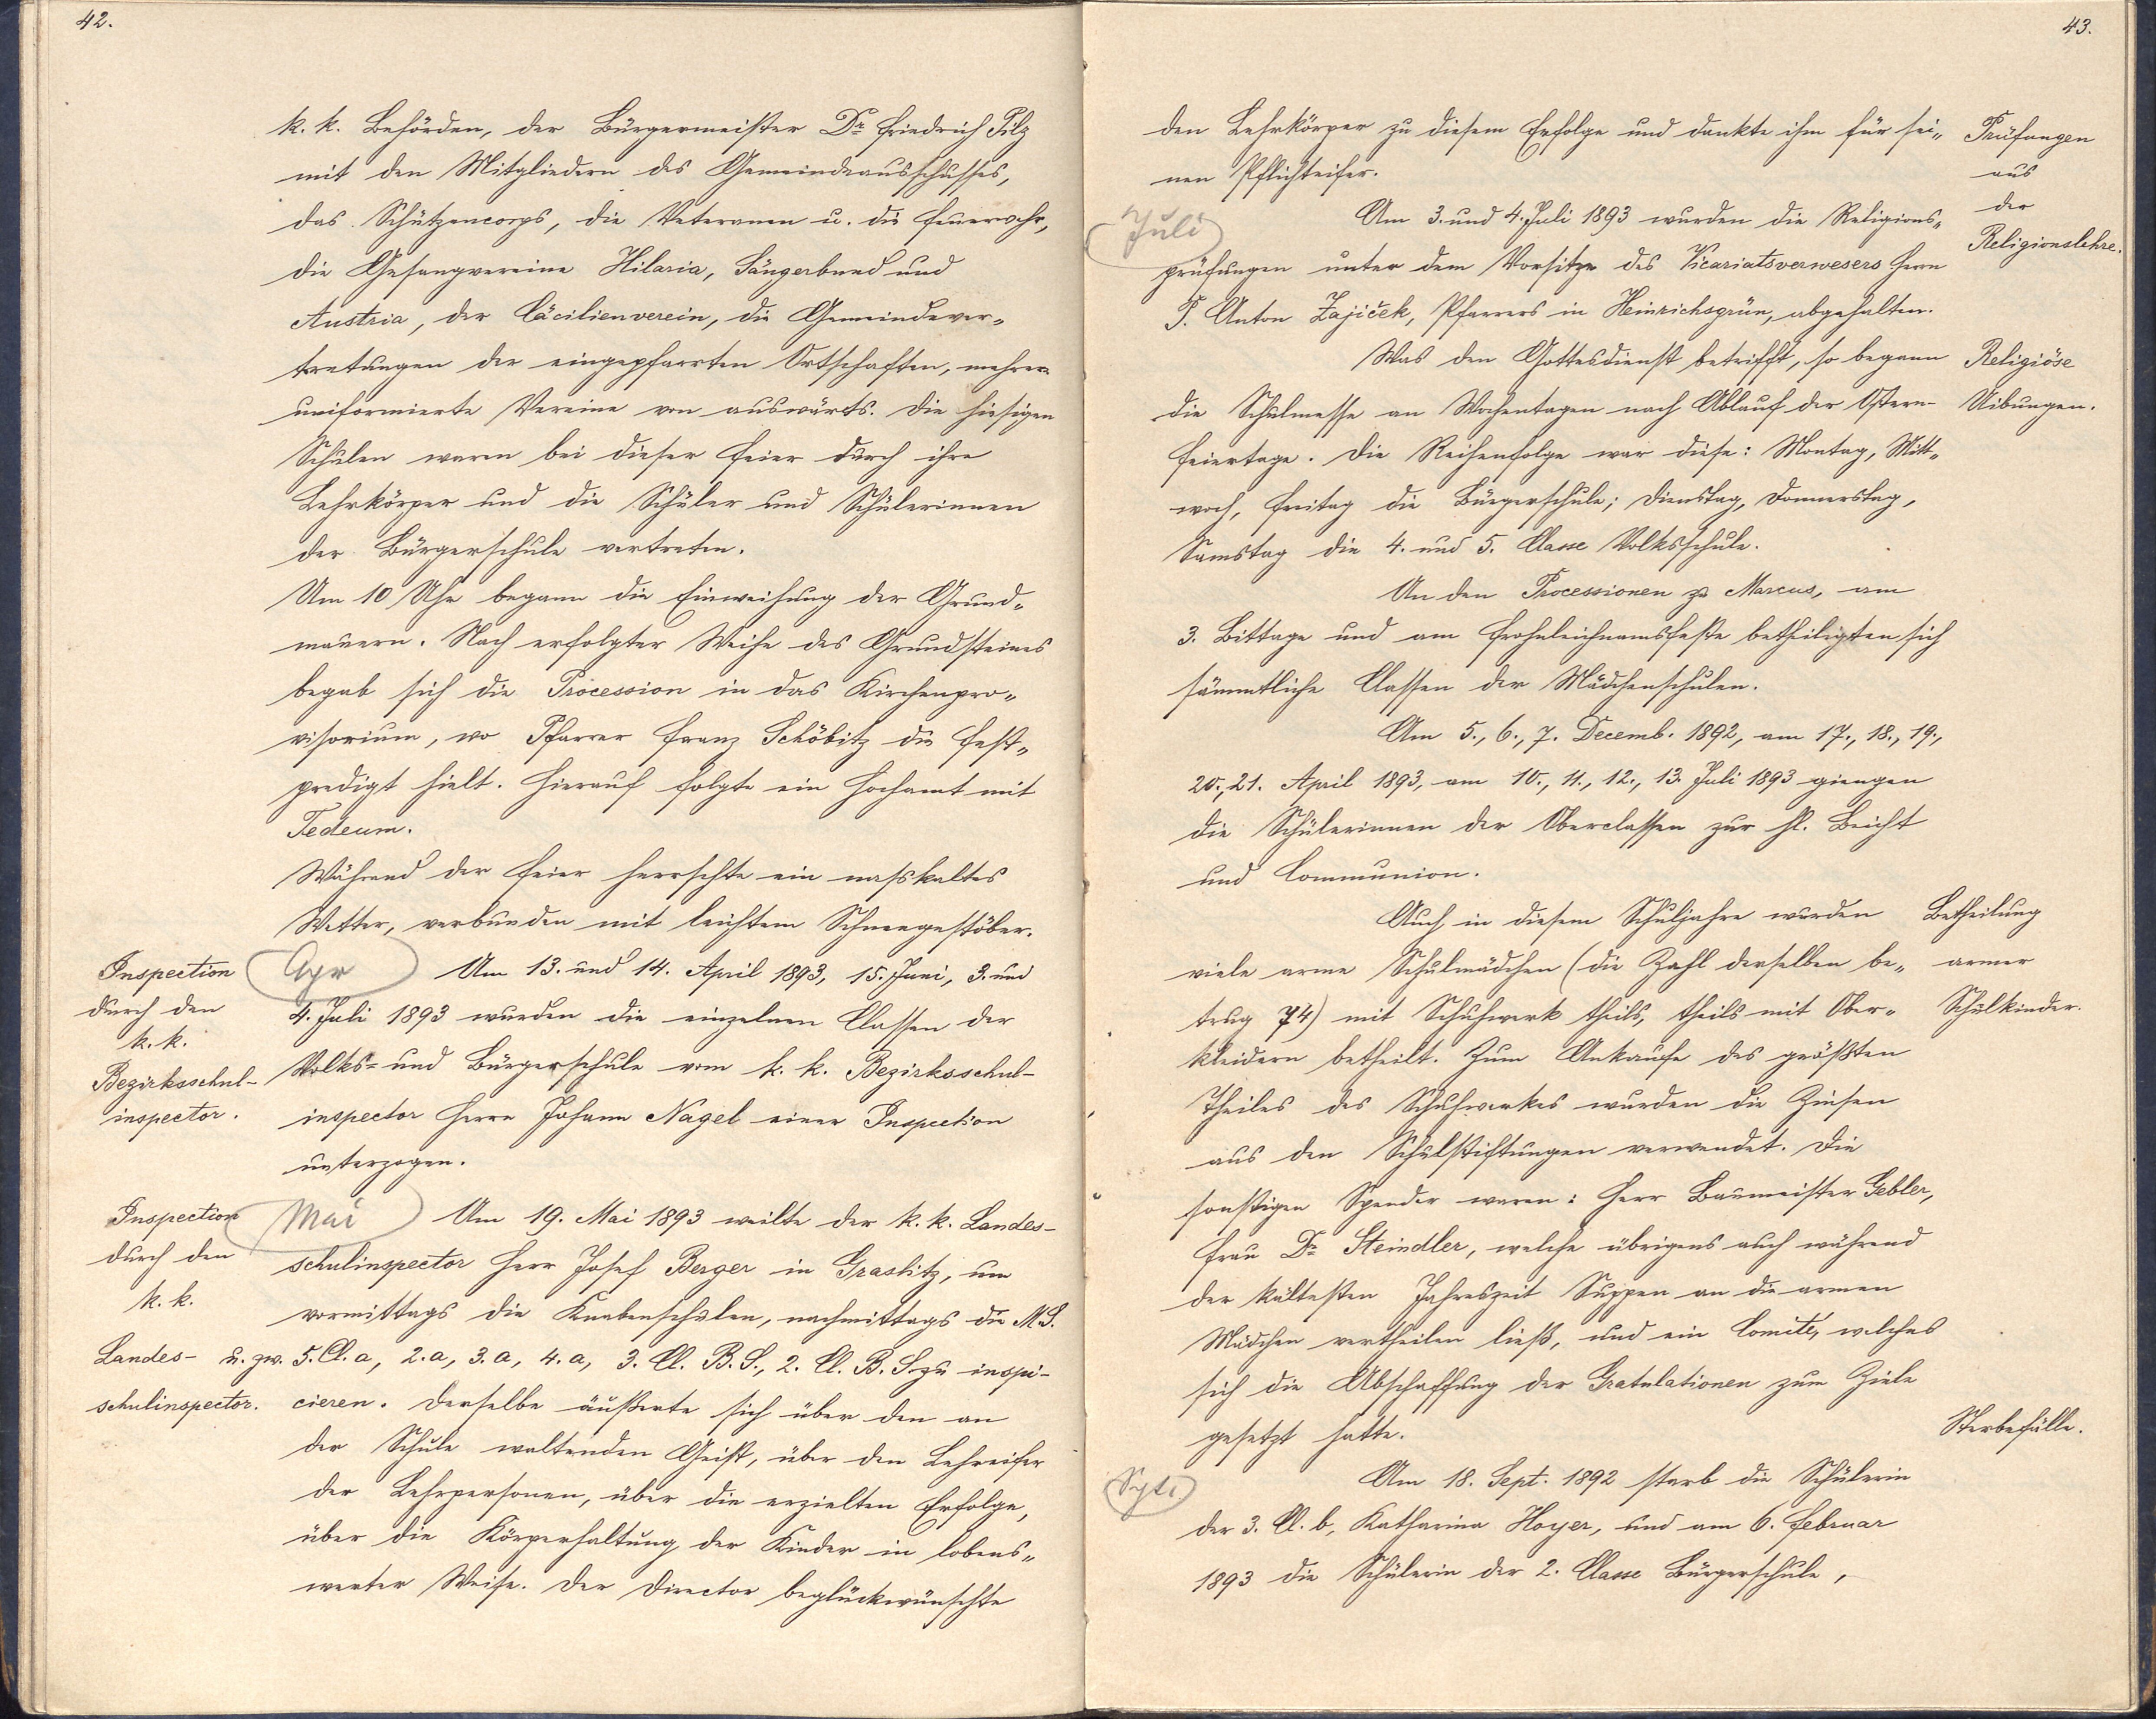 42.
k. k. Behörden, der Bürgermeister Dr Friedrich Pilz
mit den Mitgliedern des Gemeindeausschusses,
das Schützencorps, die Veteranen u. die Feuerwehr,
die Gesangvereine Hilaria, Sängerbund und
Austria, der Cäcilienverein, die Gemeindever-
tretungen der eingepfarrten Ortschaften, mehrere
uniformierte Vereine von auswärts. Die hiesigen
Schulen waren bei dieser Feier durch ihre
Lehrkörper und die Schüler und Schülerinnen
der Bürgerschule vertreten.
Um 10 Uhr begann die Einweihung der Grund-
mauern. Nach erfolgter Weihe des Grundsteines
begab sich die Procession in das Kirchenpro-
visorium, wo Pfarrer Franz Schöbitz die Fest-
predigt hielt. Hierauf folgte ein Hochamt mit
Tedeum.
Während der Feier herrschte ein nasskaltes
Wetter, verbunden mit leichtem Schneegestöber.
Inspection
durch den
k. k.
Bezirksschul-
inspector.
Apr
Am 13. und 14. April 1893, 15. Juni, 3. und
4. Juli 1893 wurden die einzelnen Classen der
Volks- und Bürgerschule vom k. k. Bezirksschul-
inspector Herrn Johann Nagel einer Inspection
unterzogen.
Inspection
durch den
k. k.
Landes-
schulinspector.
Mai
Am 19. Mai 1893 weilte der k. k. Landes-
schulinspector Herr Josef Berger in Graslitz, um
vormittags die Knabenschulen, nachmittags die M. S.
u. zw. 5. Cl. a, 2. a, 3. a, 4. a, 3. Cl. B. S., 2. Cl. B. S. zu inspi-
cieren. Derselbe äußerte sich über den an
der Schule waltenden Geist, über den Lehreifer
der Lehrpersonen, über die erzielten Erfolge,
über die Körperhaltung der Kinder in lobens-
werter Weise. Der Director beglückwünschte
43.
den Lehrkörper zu diesem Erfolge und dankte ihm für sei-
nen Pflichteifer.
Prüfungen
aus
der
Religionslehre.
Juli
Am 3. und 4. Juli 1893 wurden die Religions-
prüfungen unter dem Vorsitze des Vicariatsverwesers Herrn
P. Anton Zajiček, Pfarrers in Heinrichsgrün, abgehalten.
Religiöse
Uibungen.
Was den Gottesdienst betrifft, so begann
die Schulmesse an Wochentagen nach Ablauf der Ostern-
feiertage. Die Reihenfolge war diese: Montag, Mitt-
woch, Freitag die Bürgerschule; Dienstag, Donnerstag,
Samstag die 4. und 5. Classe Volksschule.
An den Processionen zu Marcus, am
3. Bittage und am Frohnleichnamsfeste betheiligten sich
sämmtliche Classen der Mädchenschulen.
Am 5., 6., 7. Decemb. 1892, am 17., 18., 19.,
20., 21. April 1893, am 10., 11., 12., 13. Juli 1893 giengen
die Schülerinnen der Oberclassen zur hl. Beicht
und Communion.
Betheilung
armer
Schulkinder.
Auch in diesem Schuljahre wurden
viele arme Schulmädchen (die Zahl derselben be-
trug 74) mit Schuhwerk theils, theils mit Ober-
kleidern betheilt. Zum Ankaufe des größten
Theiles des Schuhwerkes wurden die Zinsen
aus den Schulstiftungen verwendet. Die
sonstigen Spender waren: Herr Baumeister Gebler,
Frau Dr Steindler, welche übrigens auch während
der kältesten Jahreszeit Suppen an die armen
Mädchen vertheilen ließ, und ein Comité, welches
sich die Abschaffung der Gratulationen zum Ziele
gesetzt hatte.
Sterbefälle.
Spt.
Am 18. Sept. 1892 starb die Schülerin
der 3. Cl. b, Katharina Hoyer, und am 6. Februar
1893 die Schülerin der 2. Classe Bürgerschule,